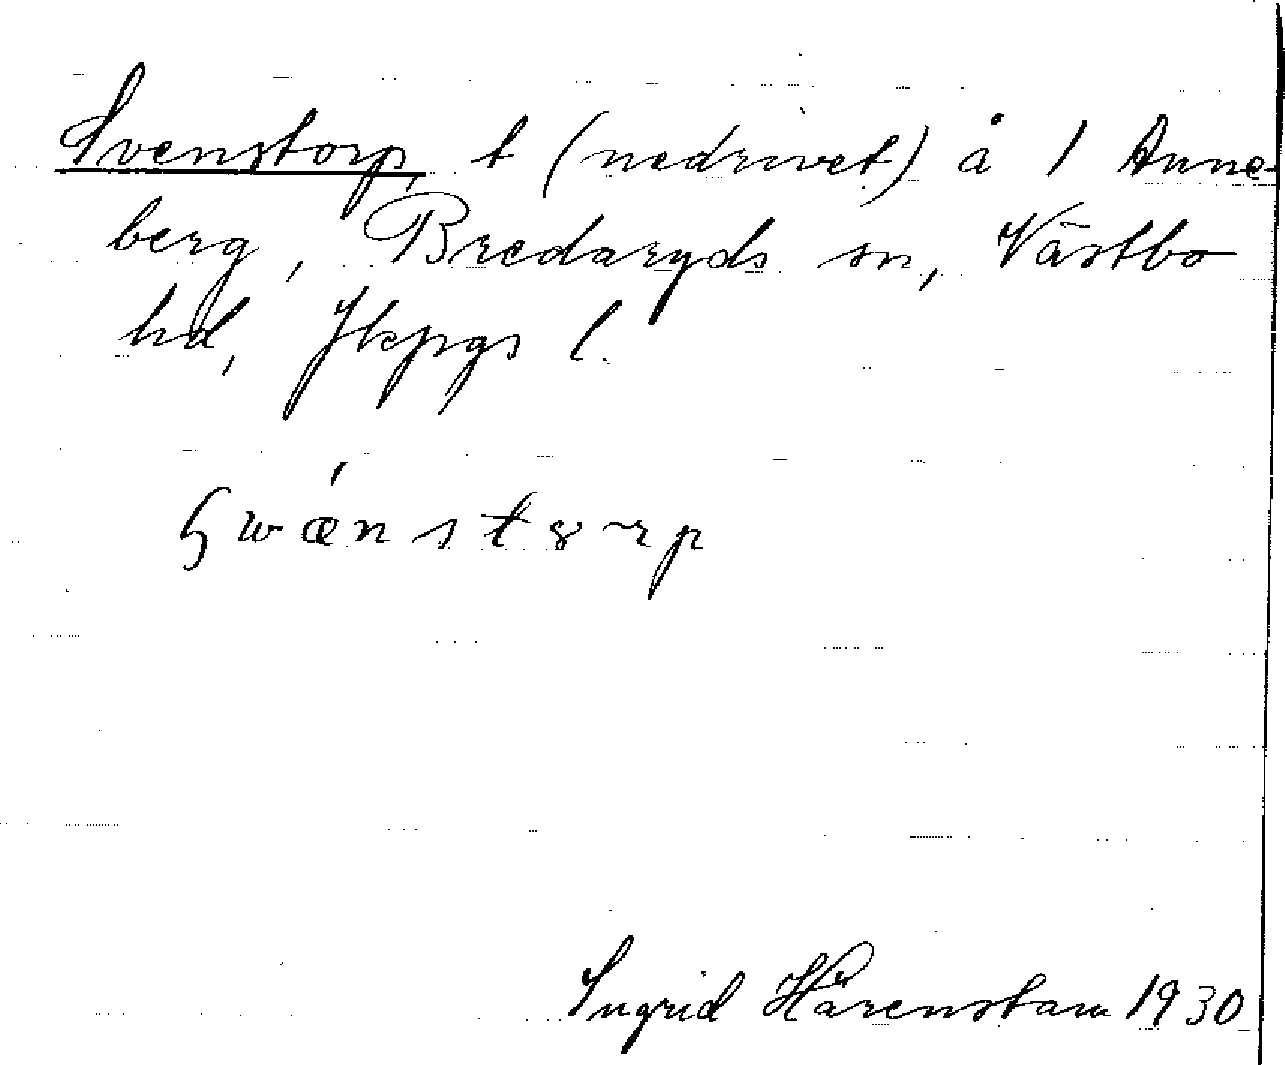 Svenstorp, t (nedrivet) å 1 Anne-
berg, Bredaryds sn, Västbo
hd, Jkpgs l.
Ingrid Härenstam 1930